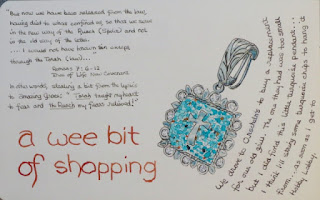 "But now we have been released from the law,
having died to what confined us, so that we serve
in the new way of the Ruach (Spirit) and not
in the old way of the letter.
.... I would not have known sin except
through the Torah (Law)...
Romans 7: 6-12
Tree of Life New Covenant
In other words, stealing a bit from the lyrics
to Amazing Grace: "Torah taught my heart
to fear and the Ruach my fears relieved!"
a wee bit
of shopping
We drove to Orschelns to buy a replacement
for our old glue. The one they had was too small
but I did find this little turquoise pendant...
I think I'll string some turquoise chips to hang it
from... as soon as I get to
Hobby Lobby.